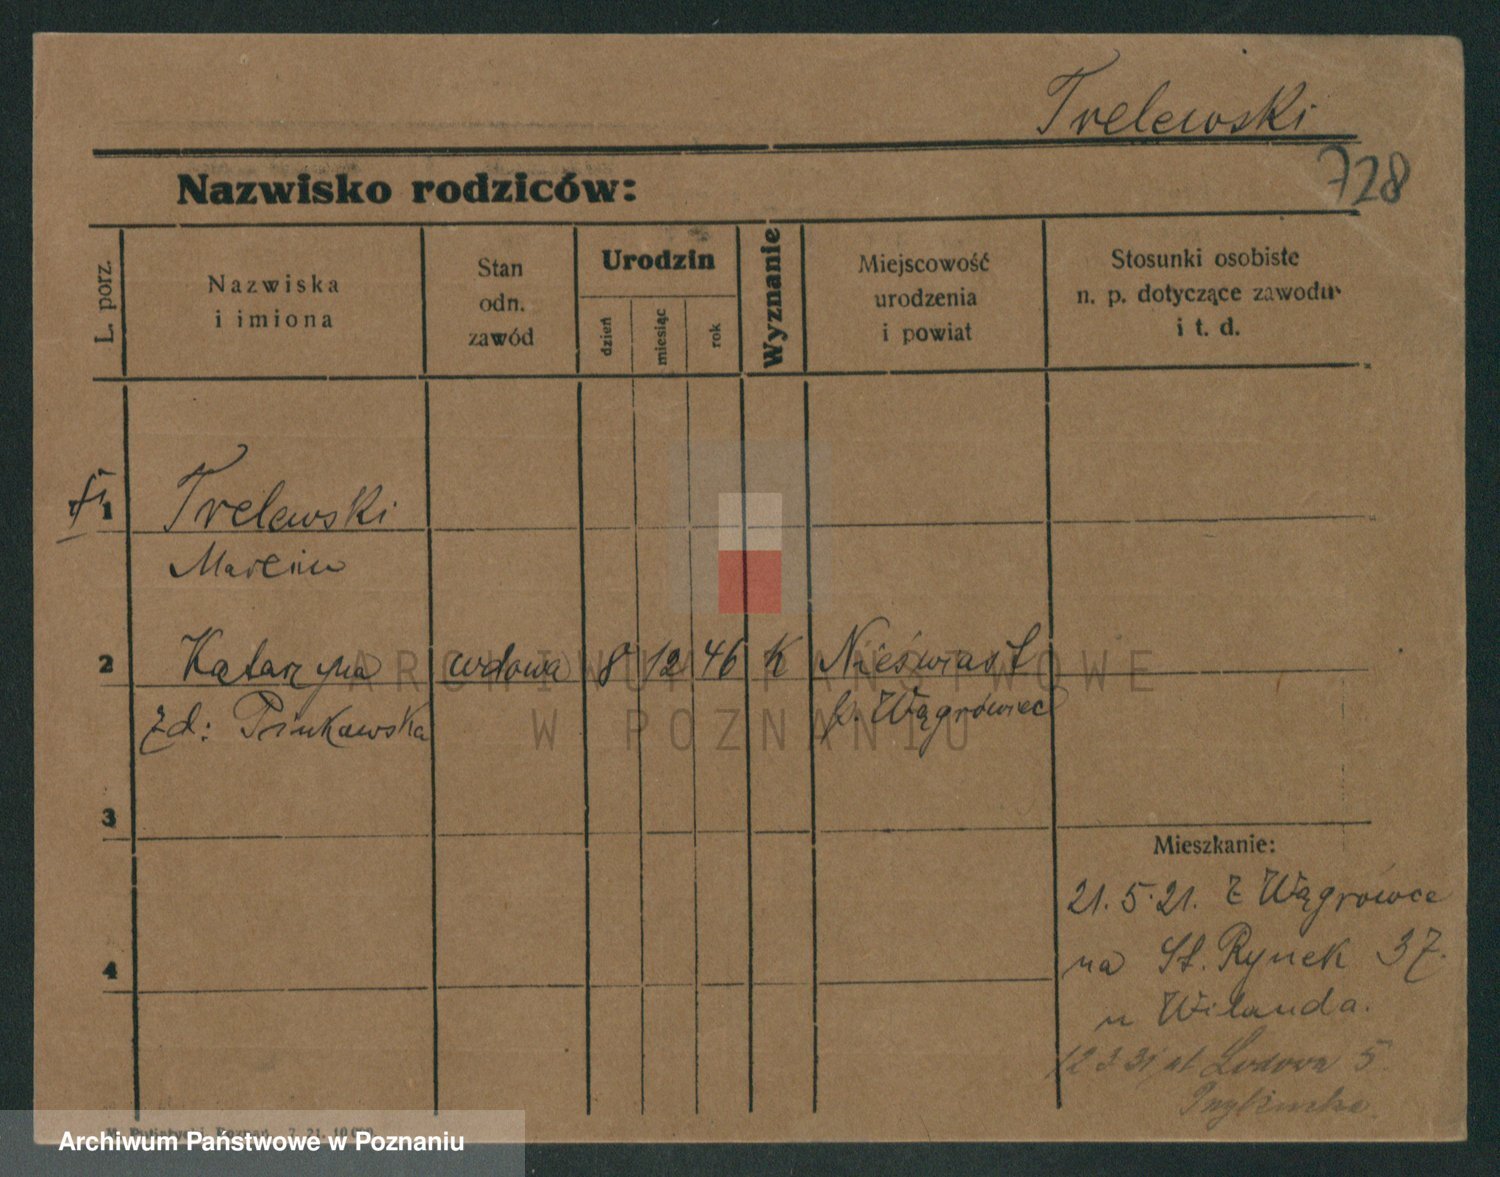 Trelewski
728
Nazwisko rodziców:
L. porz.
Nazwiska
i imiona
Stan
odn.
zawód
Urodzin
dzień
miesiąc
rok
Wyznanie
Miejscowość
urodzenia
i powiat
Stosunki osobiste
n. p. dotyczące zawodu
i t. d.
1 Trelewski
Marcin
2 Katarzyna wdowa 8 12 46 K Nieświast
zd: Pinkawska p. Wągrówiec
3
4
Mieszkanie:
21.5.21. z Wągrówca
na St. Rynek 37.
u Wilanda.
12 3 31 ul Lodowa 5.
ARCHIWUM PAŃSTWOWE
W POZNANIU
Archiwum Państwowe w Poznaniu